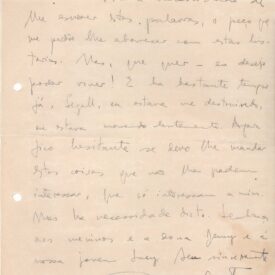 lhe escrever estas palavras, e peço que
me perdôe lhe aborrecer com estas his-
torias. Mas, que quer — eu desejo
poder viver! E ha bastante tempo
já, Segall, eu estava me destruindo,
eu estava morrendo lentamente. Agora
fico hesitante se devo lhe mandar
estas coisas que não lhe podem
interessar, que só interessam a mim.
Mas ha necessidade disto. Lembrança
aos meninos e a dona Jenny e á
nossa jovem Lucy. Seu sinceramente